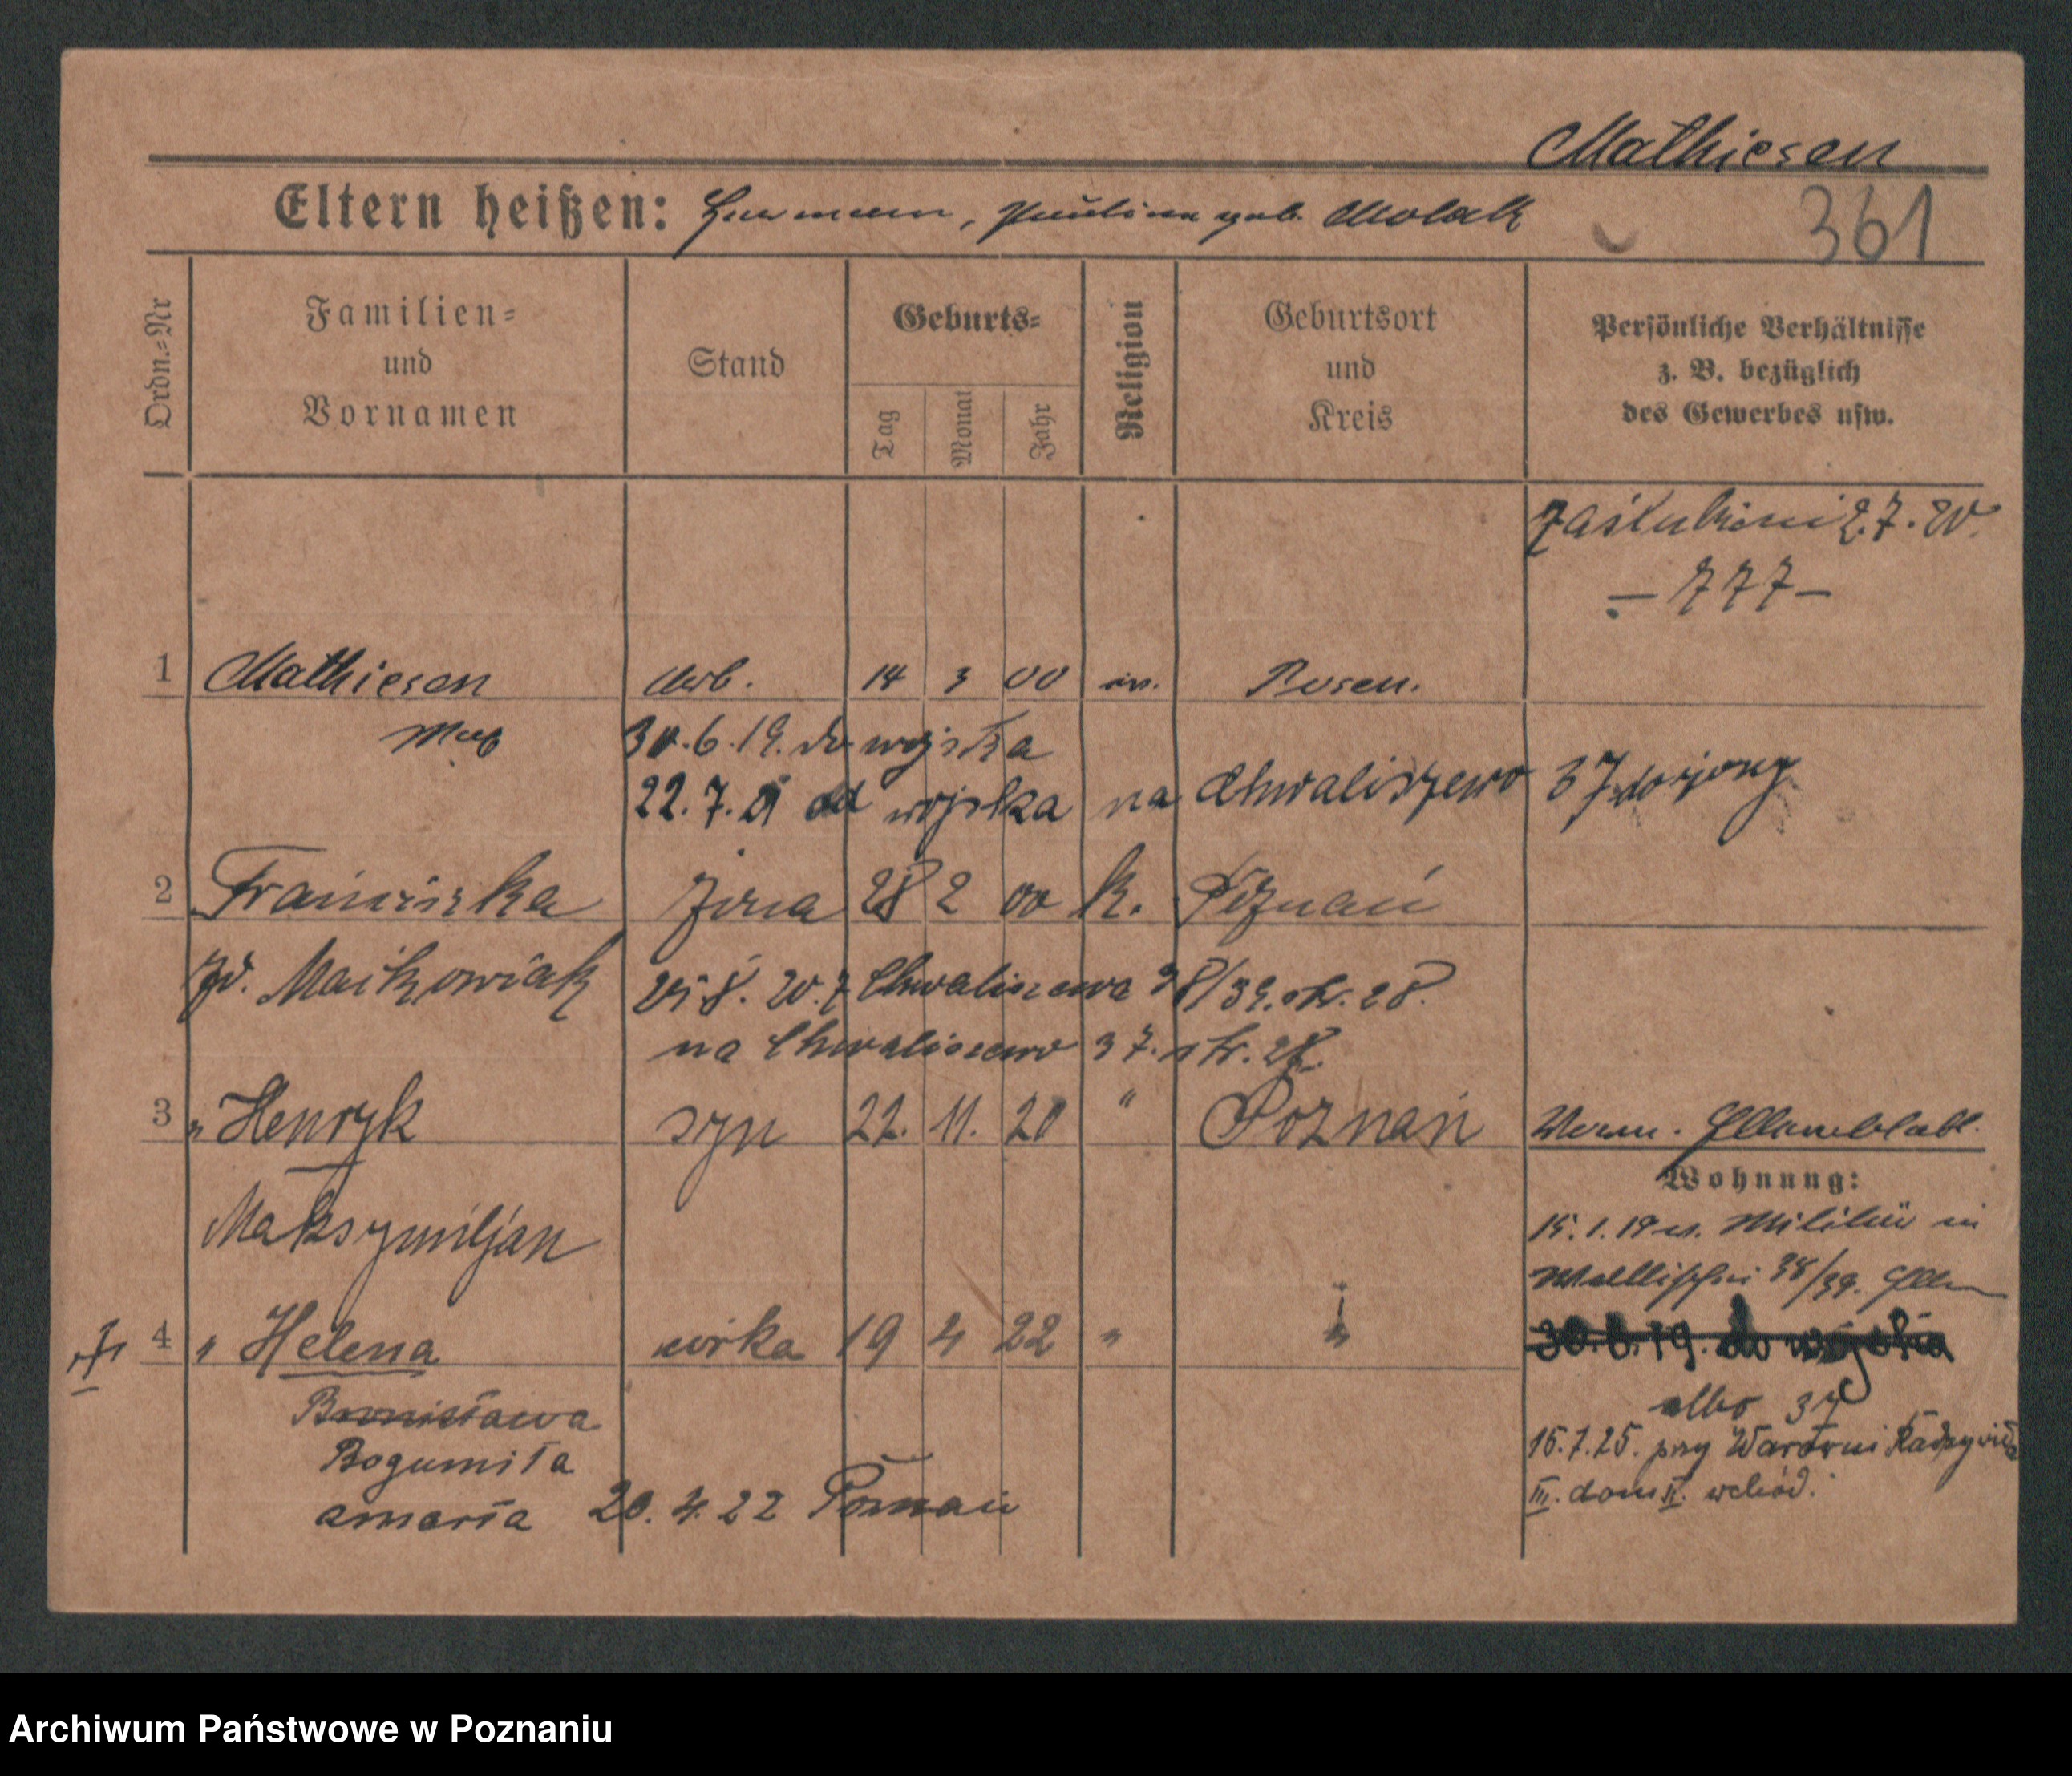 Mathiesen
Eltern heißen: Hermann, Paulina geb. Molak
361
Ordn.=Nr
Familien=
und
Vornamen
Stand
Geburts=
Tag
Monat
Jahr
Religion
Geburtsort
und
Kreis
Persönliche Verhältnisse
z. B. bezüglich
des Gewerbes usw.
zaślubieni 2.7.20.
— 777 —
1 Mathiesen Arb. 14 3 00 Posen.
Max
30.6.19. do wojska
22.7.21 od wojska na Chwaliszewo 37 do żony
2 Franciszka żona 28 2 00 k. Poznań
Maćkowiak
8. 20. z Chwaliszewa 38/39. str. 28.
na Chwaliszewo 37. str. 28.
3 " Henryk syn 22. 11. 20 " Poznań
Maksymiljan
Wohnung:
15. 1. 19 v. Militär in
Wallischei 38/39.
4 " Helena córka 19 4 22 " "
30.6.19. do wojska
Bronisława
Bogumiła
zmarła 20. 4. 22 Poznań
albo 37
15.7.25. przy Warowni Radziwiła
III. dom II. wchód.
Archiwum Państwowe w Poznaniu